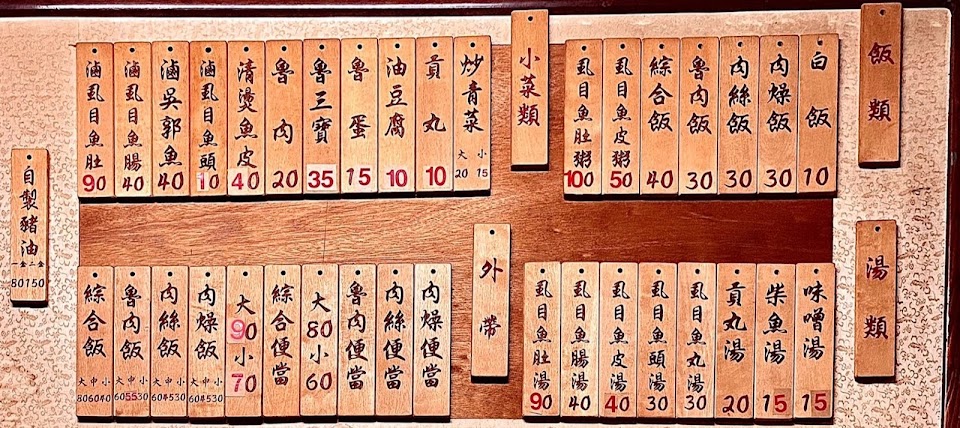 飯類
白飯 10
肉燥飯 30
肉絲飯 30
魯肉飯 30
綜合飯 40
虱目魚皮粥 50
虱目魚肚粥 100
小菜類
炒青菜 大20 小15
貢丸 10
油豆腐 10
魯蛋 15
魯三寶 35
魯肉 20
清燙魚皮 40
滷虱目魚頭 10
滷吳郭魚 40
滷虱目魚腸 40
滷虱目魚肚 90
湯類
味噌湯 15
柴魚湯 15
貢丸湯 20
虱目魚丸湯 30
虱目魚頭湯 30
虱目魚皮湯 40
虱目魚腸湯 40
虱目魚肚湯 90
外帶
肉燥便當
肉絲便當
魯肉便當
大80小60
綜合便當
大90小70
肉燥飯 大60 中45 小30
肉絲飯 大60 中45 小30
魯肉飯 大60 中55 小30
綜合飯 大80 中60 小40
自製豬油
80 150